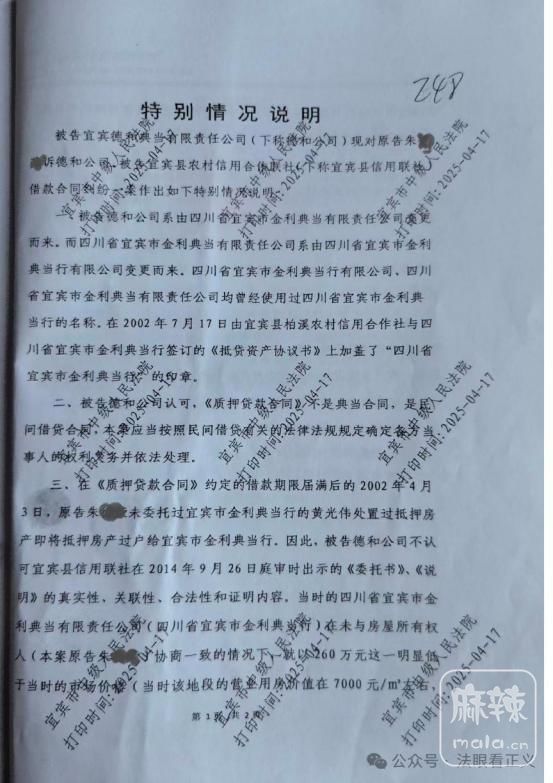 248
特别情况说明
被告宜宾德和典当有限责任公司（下称德和公司）现对原告朱
诉德和公司、被告宜宾县农村信用合作联社（下称宜宾县信用联社）
借款合同纠纷一案作出如下特别情况说明：
一、被告德和公司系由四川省宜宾市金利典当有限责任公司变更
而来。而四川省宜宾市金利典当有限责任公司系由四川省宜宾市金利
典当行有限公司变更而来。四川省宜宾市金利典当行有限公司、四川
省宜宾市金利典当有限责任公司均曾经使用过四川省宜宾市金利典
当行的名称。在2002年7月17日由宜宾县柏溪农村信用合作社与四
川省宜宾市金利典当行签订的《抵贷资产协议书》上加盖了“四川省
宜宾市金利典当行”的印章。
二、被告德和公司认可，《质押贷款合同》不是典当合同，是民
间借贷合同，本案应当按照民间借贷有关的法律法规规定确定各方当
事人的权利义务并依法处理。
三、在《质押贷款合同》约定的借款期限届满后的2002年4月
3日，原告朱未委托过宜宾市金利典当行的黄光伟处置过抵押房
产即将抵押房产过户给宜宾市金利典当行。因此，被告德和公司不认
可宜宾县信用联社在2014年9月26日庭审时出示的《委托书》、《说
明》的真实性，关联性、合法性和证明内容，当时的四川省宜宾市金
利典当有限责任公司（四川省宜宾市金利典当行）在未与房屋所有权
人（本案原告朱）协商一致的情况下，就以260万元这一明显低
于当时的市场价格（当时该地段的营业用房价值在7000元/m²左右，
第1页/共2页
宜宾市中级人民法院
打印时间:2025-04-17
宜宾市中级人民法院
打印时间:2025-04-17
宜宾市中级人民法院
打印时间:2025-04-17
宜宾市中级人民法院
打印时间:2025-04-17
宜宾市中级人民法院
打印时间:2025-04-17
宜宾市中级人民法院
打印时间:2025-04-17
麻辣
mala.cn
公众号·法眼看正义